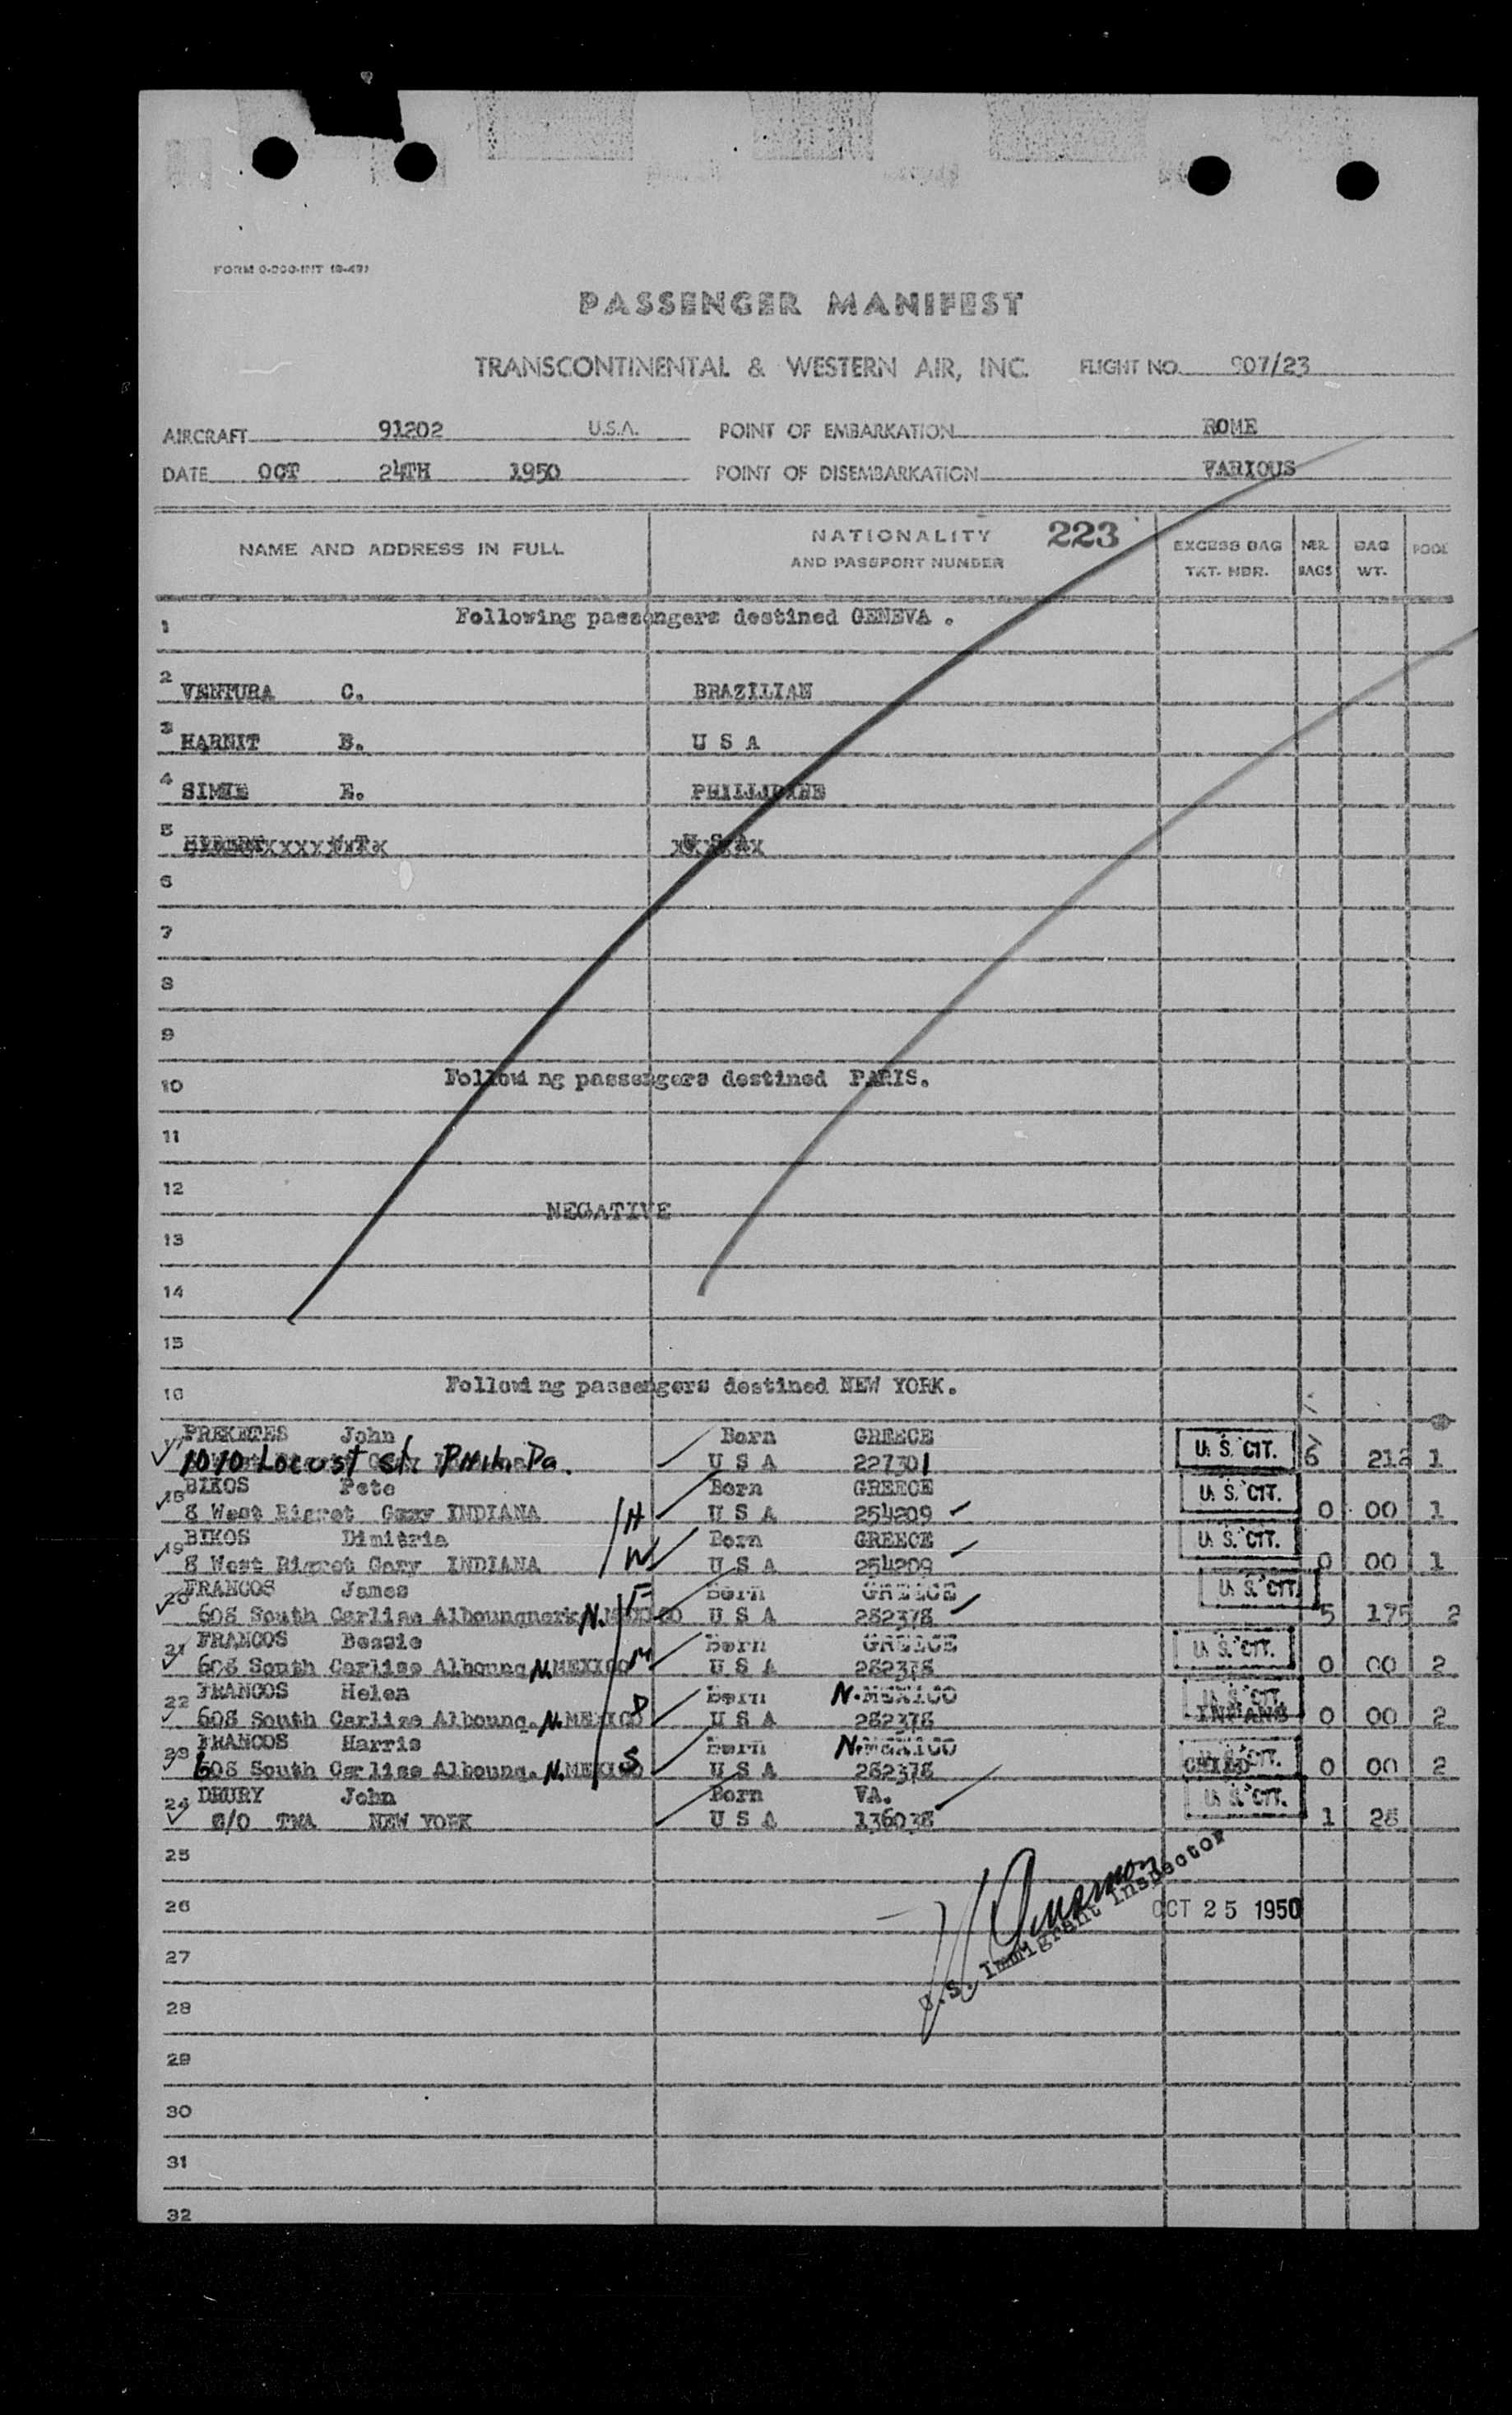 PASSENGER MANIFEST
TRANSCONTINENTAL & WESTERN AIR, INC. FLIGHT NO. 907/23
AIRCRAFT 91202 U.S.A. POINT OF EMBARKATION ROME
DATE OCT 24TH 1950 POINT OF DISEMBARKATION VARIOUS
NAME AND ADDRESS IN FULL NATIONALITY AND PASSPORT NUMBER 223 EXCESS BAG TKT. NBR. NBR. BAGS BAG WT. POOL
1 Following passengers destined GENEVA .
2 VENTURA C. BRAZILIAN
3 HARNIT B. U S A
4 SIMIE E. PHILLIPINE
5 U S A
6
7
8
9
10 Followi ng passengers destined PARIS.
11
12
NEGATIVE
13
14
15
16 Followi ng passengers destined NEW YORK.
17 PREKETES John Born GREECE U. S. CIT.
1010 Locust str. Phila. Pa. U S A 227301 6 212 1
18 BIKOS Pete Born GREECE U. S. CIT.
8 West Rigret Gary INDIANA H U S A 254209 0 00 1
19 BIKOS Dimitria Born GREECE U. S. CIT.
8 West Rigret Gary INDIANA W U S A 254209 0 00 1
20 FRANCOS James F Born GREECE U. S. CIT.
608 South Carlise Albounqnerk N. MEXICO U S A 282378 5 175 2
21 FRANCOS Bessie Born GREECE U. S. CIT.
608 South Carlise Albounq N. MEXICO M U S A 282378 0 00 2
22 FRANCOS Helen Born N. MEXICO U. S. CIT.
608 South Carlise Albounq. N. MEXICO D U S A 282378 INFANS 0 00 2
23 FRANCOS Harris Born N. MEXICO U. S. CIT.
608 South Carlise Albounq. N. MEXICO S U S A 282378 CHILD 0 00 2
24 DRURY John Born VA. U. S. CIT.
C/O TWA NEW YORK U S A 136038 1 28
25
26 OCT 25 1950
U.S. Immigrant Inspector
27
28
29
30
31
32